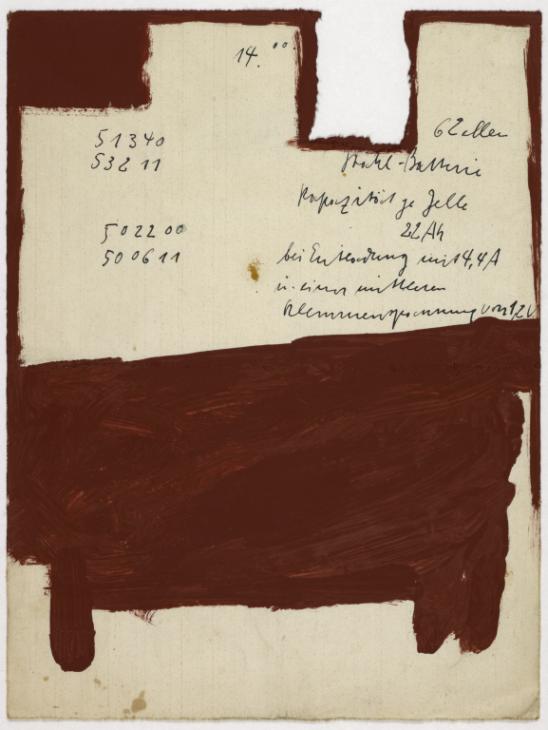 14.00
51340
53211
502200
500611
6 Zellen
Stahl-Batterie
Kapazität je Zelle
22 Ah
bei Entladung mit 4,4 A
u. einer mittleren
Klemmenspannung von 1,2 V